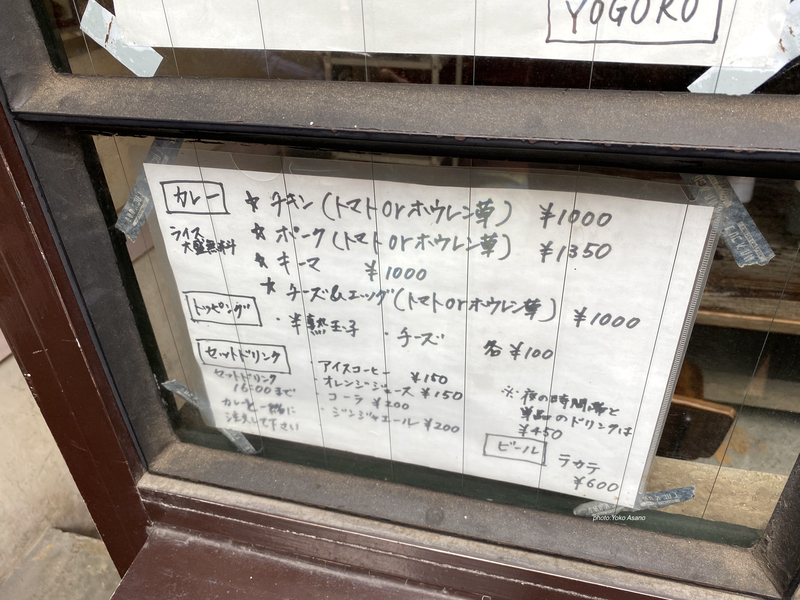 YOGORO
カレー
★ チキン (トマトorホウレン草) ¥1000
ライス
大盛無料
★ ポーク (トマトorホウレン草) ¥1350
★ キーマ ¥1000
★ チーズ&エッグ (トマトorホウレン草) ¥1000
トッピング
・半熟玉子 ・チーズ 各¥100
セットドリンク
セットドリンク
16:00まで
カレーと一緒に
注文して下さい
・アイスコーヒー ¥150
・オレンジジュース ¥150
・コーラ ¥200
・ジンジャエール ¥200
※夜の時間帯と
単品のドリンクは
¥450
ビール
ラカテ
¥600
photo:Yoko Asano